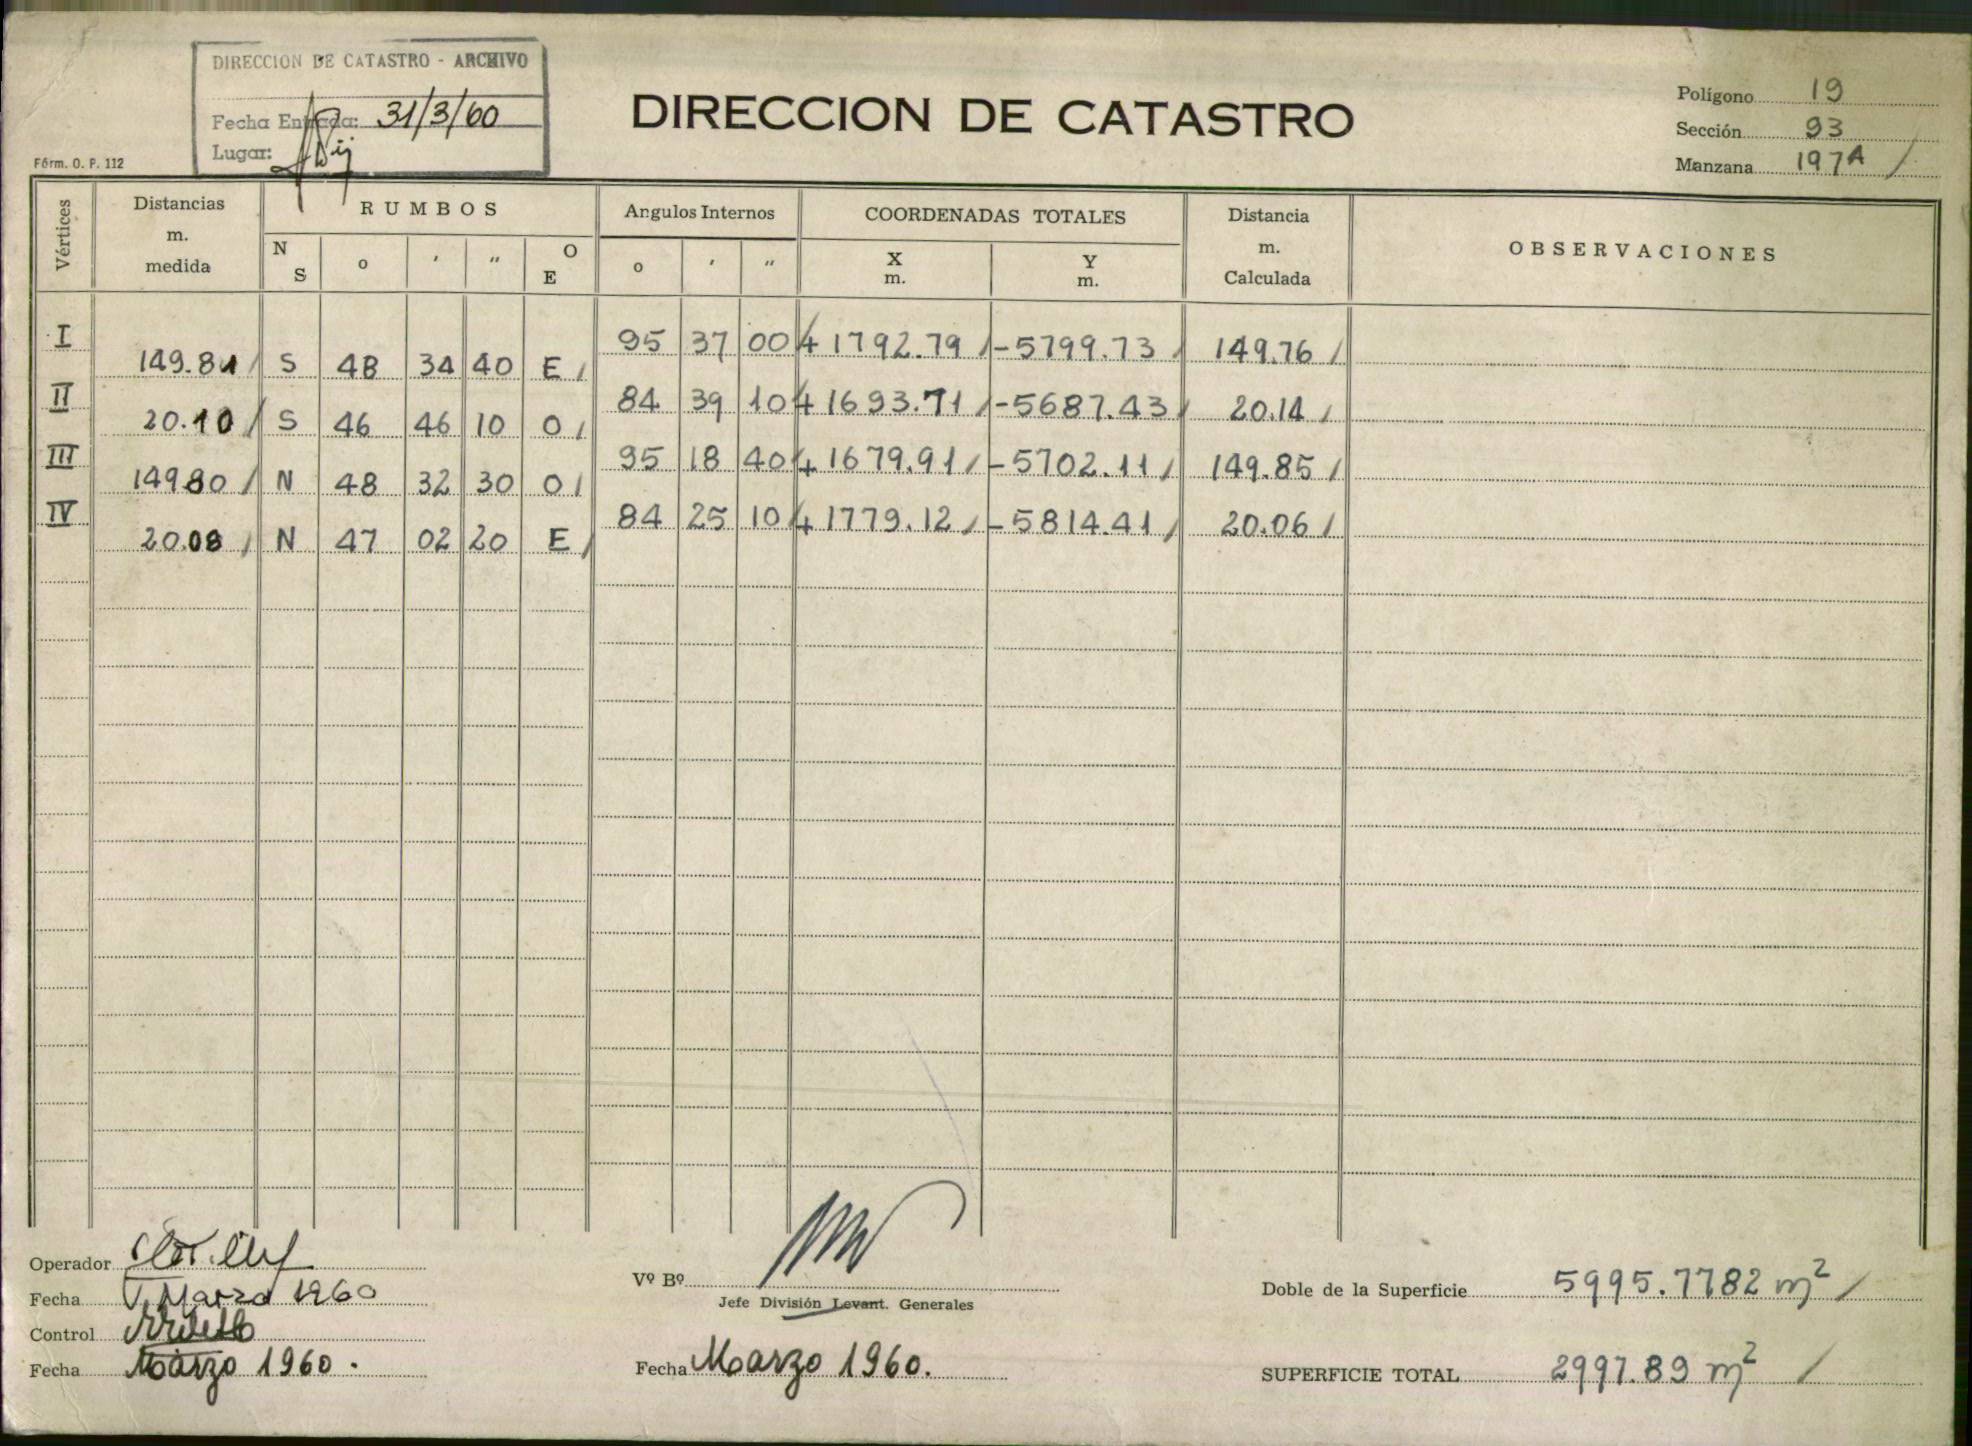 DIRECCION DE CATASTRO - ARCHIVO
Fecha Entrada: 31/3/60
Lugar:
Fórm. O. P. 112
DIRECCION DE CATASTRO
Polígono 19
Sección 93
Manzana 197A /
Vértices Distancias m. medida RUMBOS Angulos Internos COORDENADAS TOTALES Distancia m. Calculada OBSERVACIONES
N S o ′ ″ O E o ′ ″ X m. Y m.
I 95 37 00 + 1792.79 / -5799.73 / 149.76 /
149.81 / S 48 34 40 E /
II 84 39 10 + 1693.71 / -5687.43 / 20.14 /
20.10 / S 46 46 10 O /
III 95 18 40 + 1679.91 / -5702.11 / 149.85 /
149.80 / N 48 32 30 O /
IV 84 25 10 + 1779.12 / -5814.41 / 20.06 /
20.08 / N 47 02 20 E /
Operador
Fecha Marzo 1960
Control
Fecha Marzo 1960.
Vº Bº
Jefe División Levant. Generales
Fecha Marzo 1960.
Doble de la Superficie 5995.7782 m² /
SUPERFICIE TOTAL 2997.89 m² /